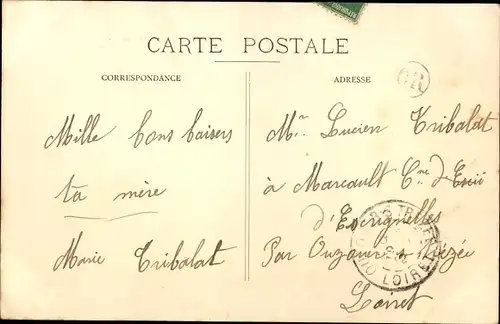 CARTE POSTALE
CORRESPONDANCE
ADRESSE
OR
Mille bons baisers
ta mère
Marie Tribalat
Mr. Lucien Tribalat
à Marcault Cne
d'Escrignelles
Par Ouzouer s/ Trézée
Loiret
LOIRET